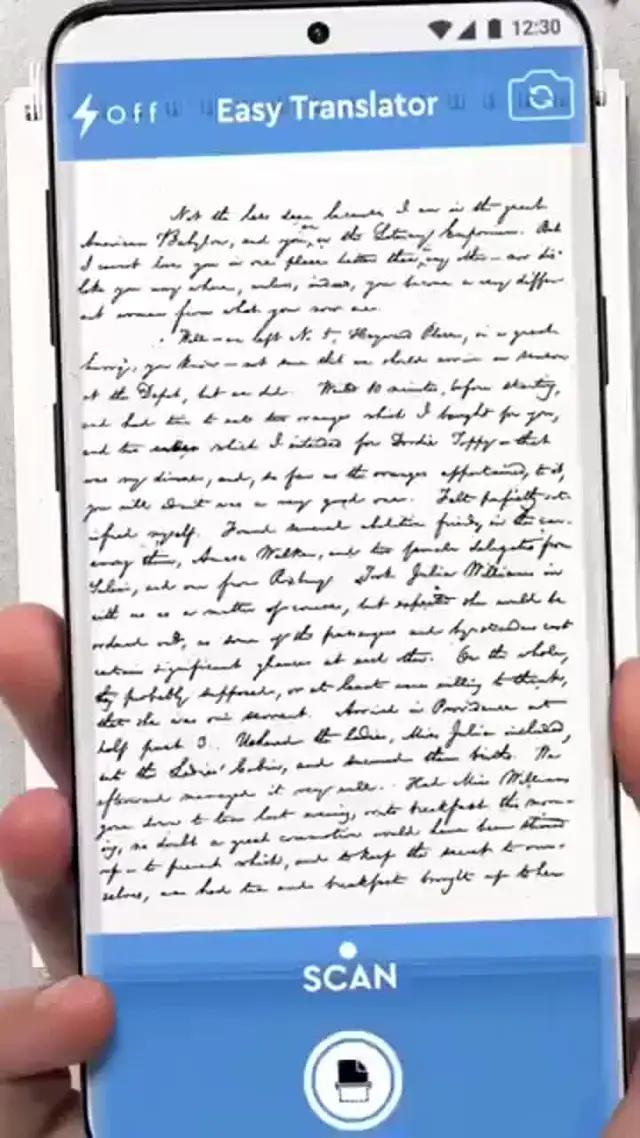 12:30
Off
Easy Translator
Not the less dear because I am in the great
American Babylon, and you, in the Literary Emporium. But
I cannot love you in one place better than any other – nor dis-
like you any where, unless, indeed, you become a very differ
ent woman from what you now are.
Well – we left No. 5, Hayward Place, in a great
hurry, you know – not sure that we should arrive in season
at the Depot, but we did. Waited 10 minutes, before starting,
and had time to eat two oranges which I bought for you,
and two which I intended for Dordie Toppy – that
was my dinner, and, so far as the oranges appertained to it,
you will admit was a very good one. Felt perfectly sat-
isfied myself. Found several abolition friends in the car.
among them, Amasa Walker, and two female delegates from
Salem, and one from Roxbury. Took Julia Williams in
with us as a matter of course, but expected she would be
ordered out, as some of the passengers and bystanders cast
certain significant glances at each other. On the whole,
they probably supposed, or at least were willing to think,
that she was our servant. Arrived in Providence at
half past 3. Ushered the ladies, Miss Julia included,
into the Ladies' Cabin, and secured their births. We
afterward managed it very well. Had Miss Williams
gone down to tea last evening, or to breakfast this morn-
ing, no doubt a great commotion would have been stirred
up – to prevent which, and to keep the secret to our-
selves, we had tea and breakfast brought up to her
SCAN